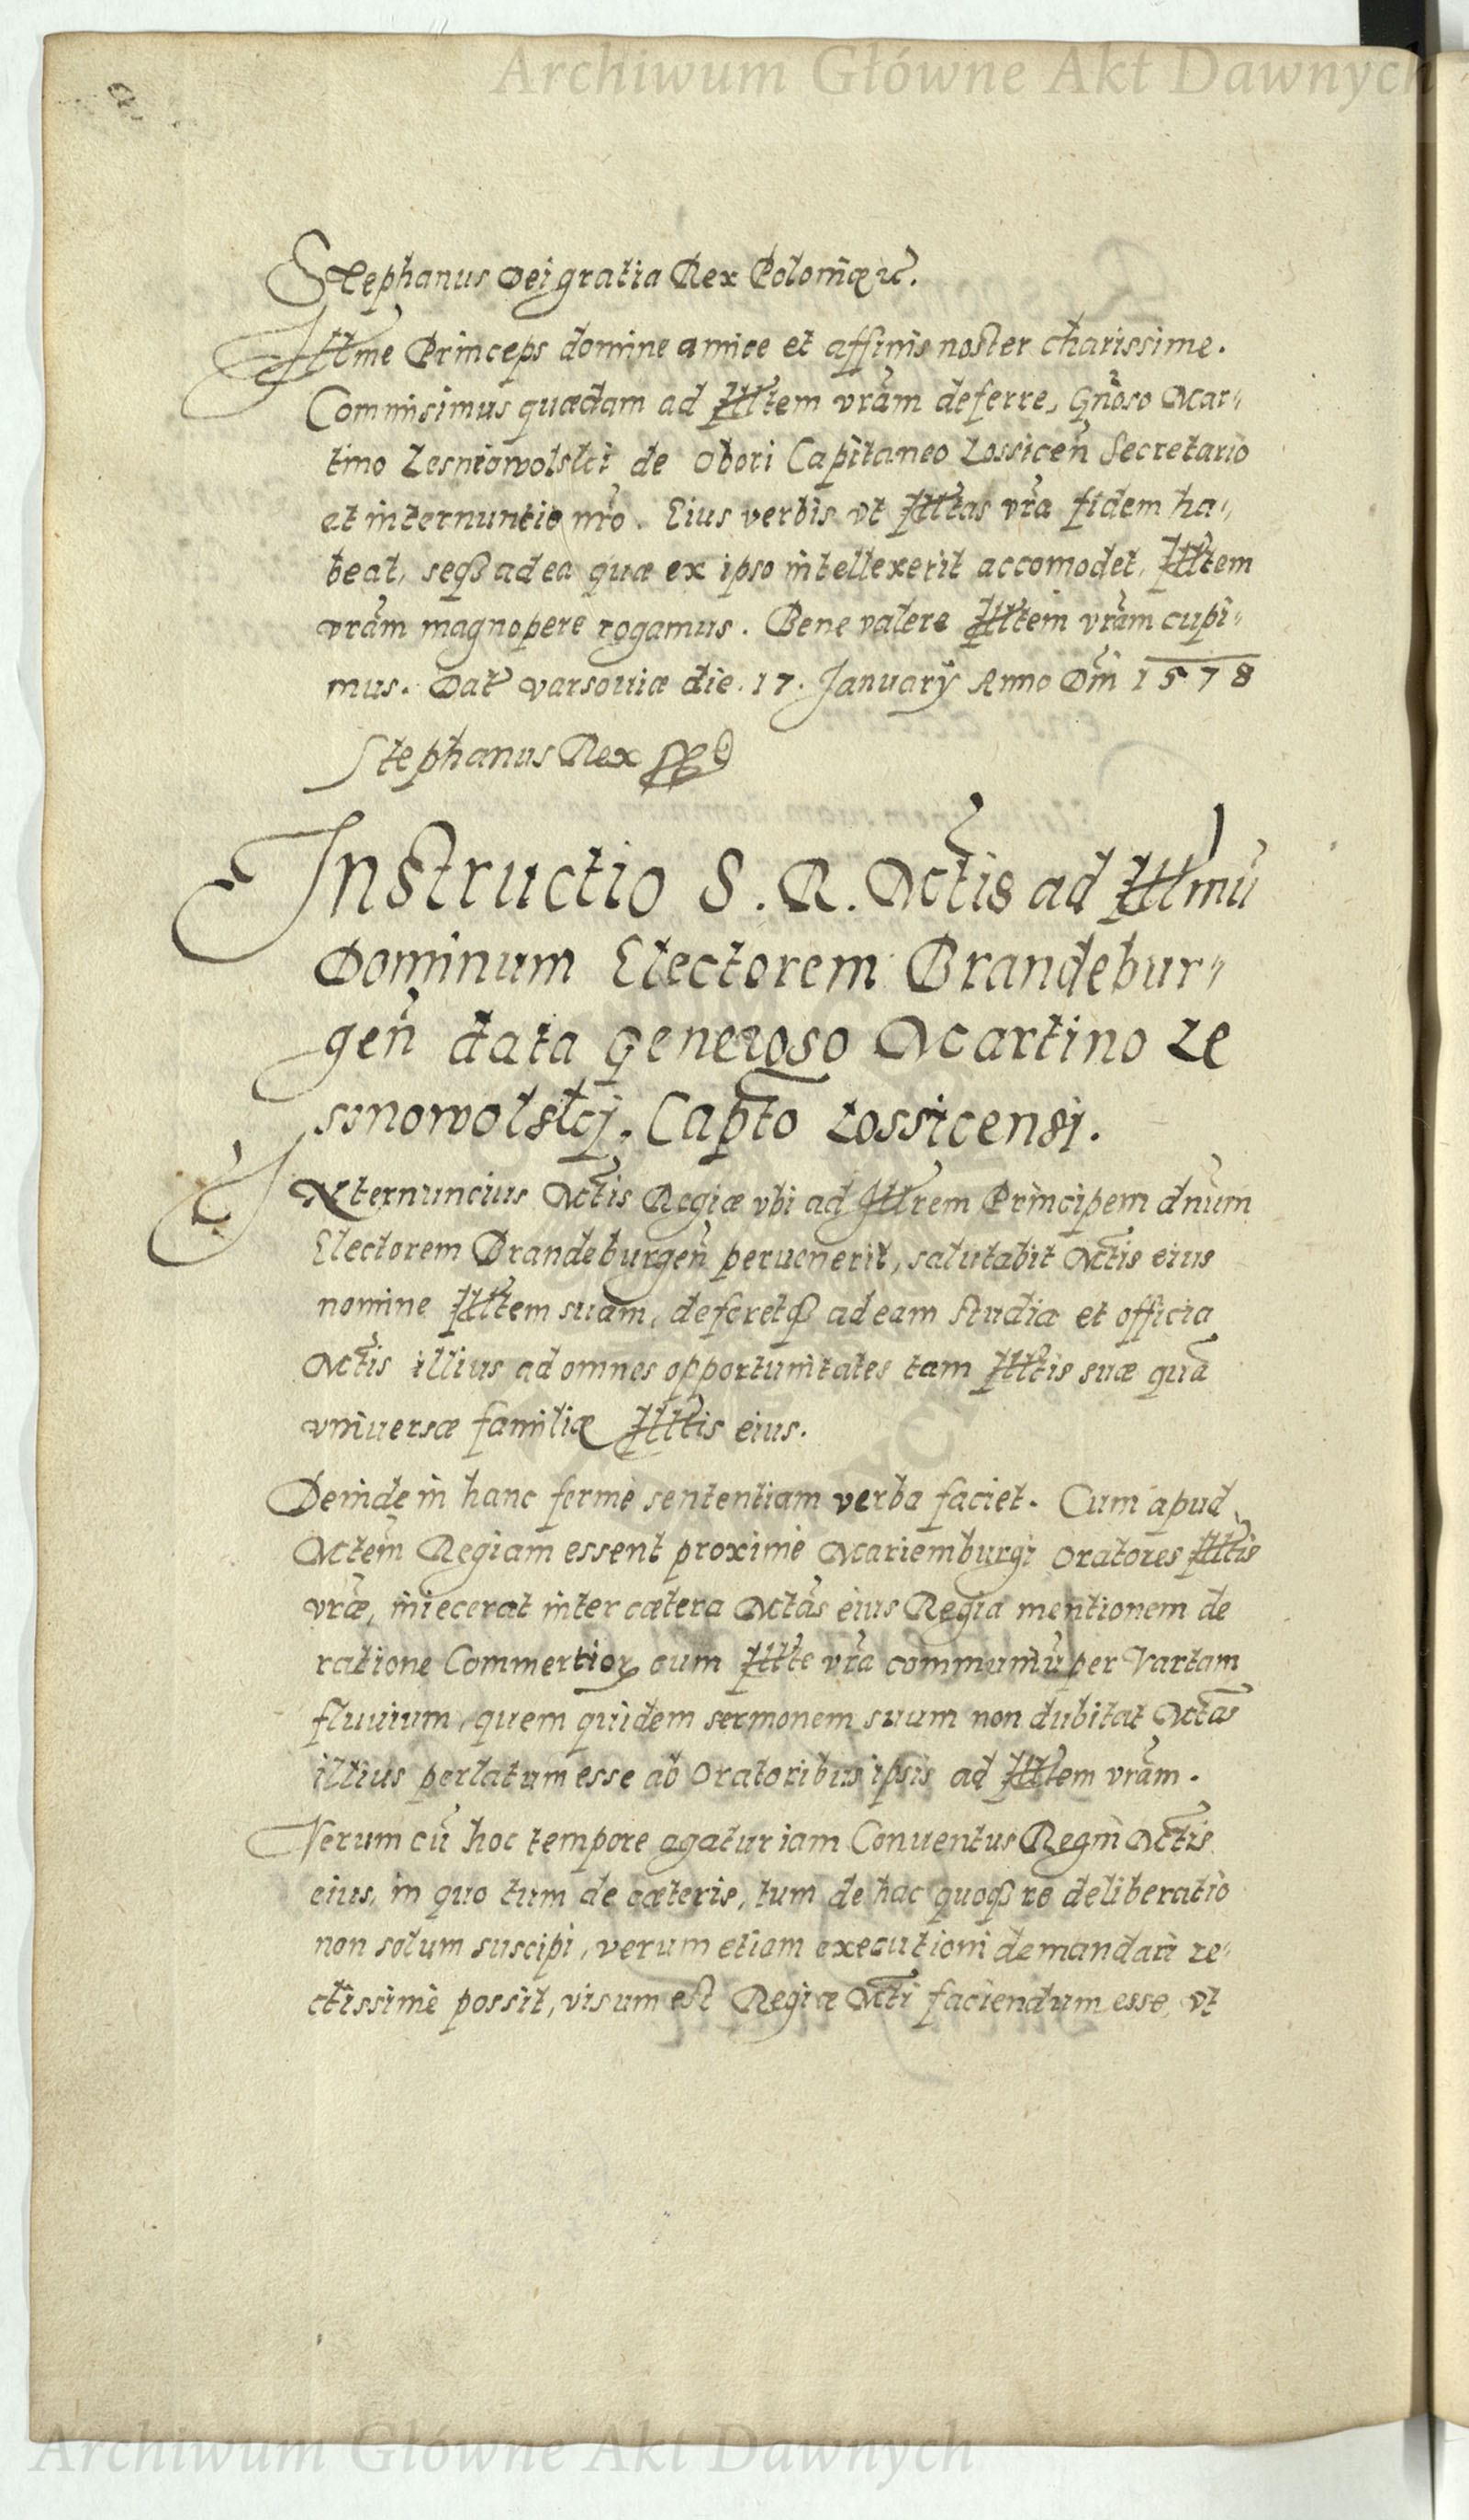 Archiwum Główne Akt Dawnych
Stephanus Dei gratia Rex Poloniæ &c.
Illme Princeps domine amice et affinis noster charissime.
Commisimus quædam ad Illtem vram deferre, Gnoso Mar„
tino Lesniowolski de Obori Capitaneo Lossicen Secretario
et internuntio nro. Eius verbis vt Illtas vra fidem ha„
beat, seqȝ ad ea quæ ex ipso intellexerit accomodet, Illtem
vram magnopere rogamus. Bene valere Illtem vram cupi„
mus. Dat Varsouiæ die. 17. Januarij Anno Dni 1578
Stephanus Rex
Instructio S. R. Mtis ad Illmu
Dominum Electorem Brandebur„
gen data Generoso Martino Le
sinowolskj. Capto Lossicensi.
Internuncius Mtis Regiæ vbi ad Illrem Principem dnum
Electorem Brandeburgen peruenerit, salutabit Mtis eius
nomine Illtem suam, deferetqȝ ad eam studia et officia
Mtis illius ad omnes opportunitates tam Illtis suæ qua
vniuersæ familiæ Illtis eius.
Deinde in hanc fermè sententiam verba faciet. Cum apud
Mtem Regiam essent proximè Mariemburgi Oratores Illtis
vræ, iniecerat inter cætera Mtas eius Regia mentionem de
ratione Commertior cum Illte vra communiu per Vartam
fluuium, quem quidem sermonem suum non dubitat Mtas
illius perlatum esse ab Oratoribus ipsis ad Illtem vram.
Verum cu hoc tempore agatur iam Conuentus Regni Mtis
eius, in quo tum de cæteris, tum de hac quoqȝ re deliberatio
non solum suscipi, verum etiam executioni demandari re„
ctissimè possit, visum est Regiæ Mti faciendum esse, vt
Archiwum Główne Akt Dawnych